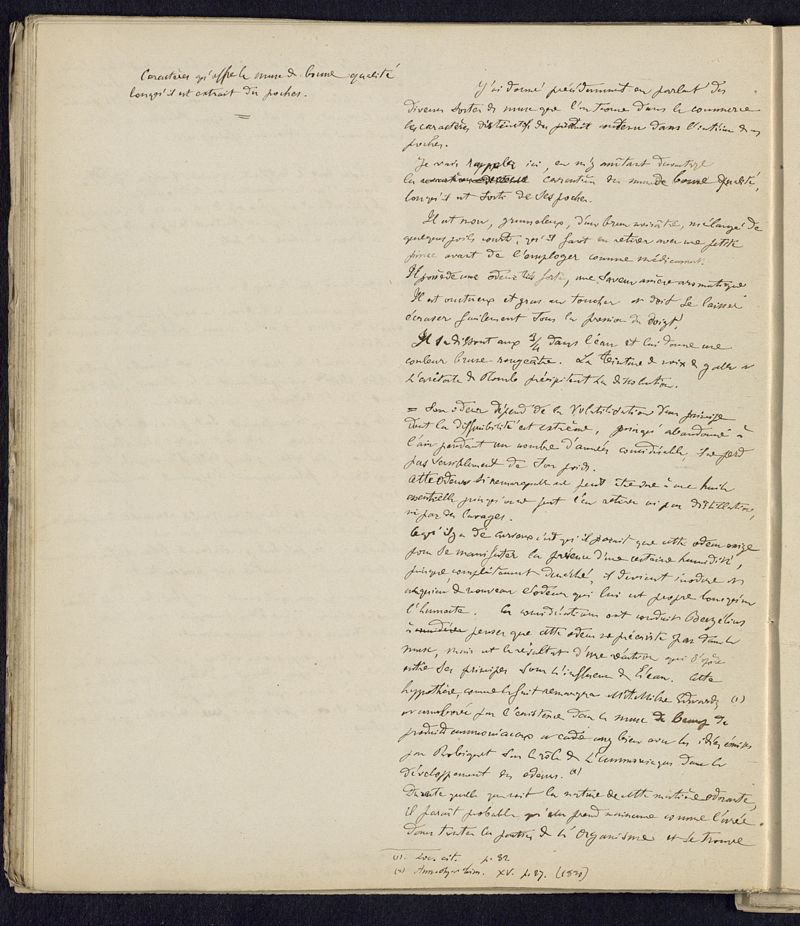 Caractères qu'offre le musc de bonne qualité
lorsqu'il est extrait des poches.
J'ai donné précédemment en parlant des
diverses sortes de musc que l'on trouve dans le commerce
les caractères distinctifs du produit contenu dans l'intérieur des
poches.
Je vais rappeler ici, en m'y arrêtant davantage
les caractères du musc de bonne qualité,
lorsqu'il est sorti de ses poches.
Il est mou, grumeleux, d'un brun noirâtre, mélangé de
quelques poils courts, qu'il faut en retirer avec une petite
pince avant de l'employer comme médicament.
Il possède une odeur très forte, une saveur amère aromatique
Il est onctueux et gras au toucher et doit se laisser
écraser facilement sous la pression du doigt.
Il se dissout aux 3/4 dans l'eau et lui donne une
couleur brune rougeâtre. La teinture de noix de galle et
l'acétate de Plomb précipitent la dissolution.
= Son odeur dépend de la volatilisation d'un principe
dont la diffusibilité est extrême, puisqu'abandonné à
l'air pendant un nombre d'années considérable, il ne perd
pas sensiblement de son poids.
Cette odeur si remarquable ne peut être due à une huile
essentielle puisqu'on ne peut l'en retirer ni par distillation,
ni par des lavages.
Ce qu'il y a de curieux c'est qu'il paraît que cette odeur exige
pour se manifester la présence d'une certaine humidité,
puisque complètement desséché, il devient inodore et
acquiert de nouveau l'odeur qui lui est propre lorsqu'on
l'humecte. Ces considérations ont conduit Berzélius
à penser que cette odeur ne préexiste pas dans le
musc, mais est le résultat d'une réaction qui s'opère
entre ses principes sous l'influence de l'eau. Cette
hypothèse, comme le fait remarquer Mr Milne Edwards (1)
est corroborée par l'existence dans le musc de
produits ammoniacaux et cadre assez bien avec les idées émises
par Robiquet sur le rôle de l'ammoniaque dans le
développement des odeurs. (2)
Du reste quelle que soit la nature de cette matière odorante,
il paraît probable qu'elle prend naissance comme l'urée
dans toutes les parties de l'Organisme et se trouve
(1). Loc. cit. p. 32
(2) Ann. de chim. XV. p. 27. (1820)